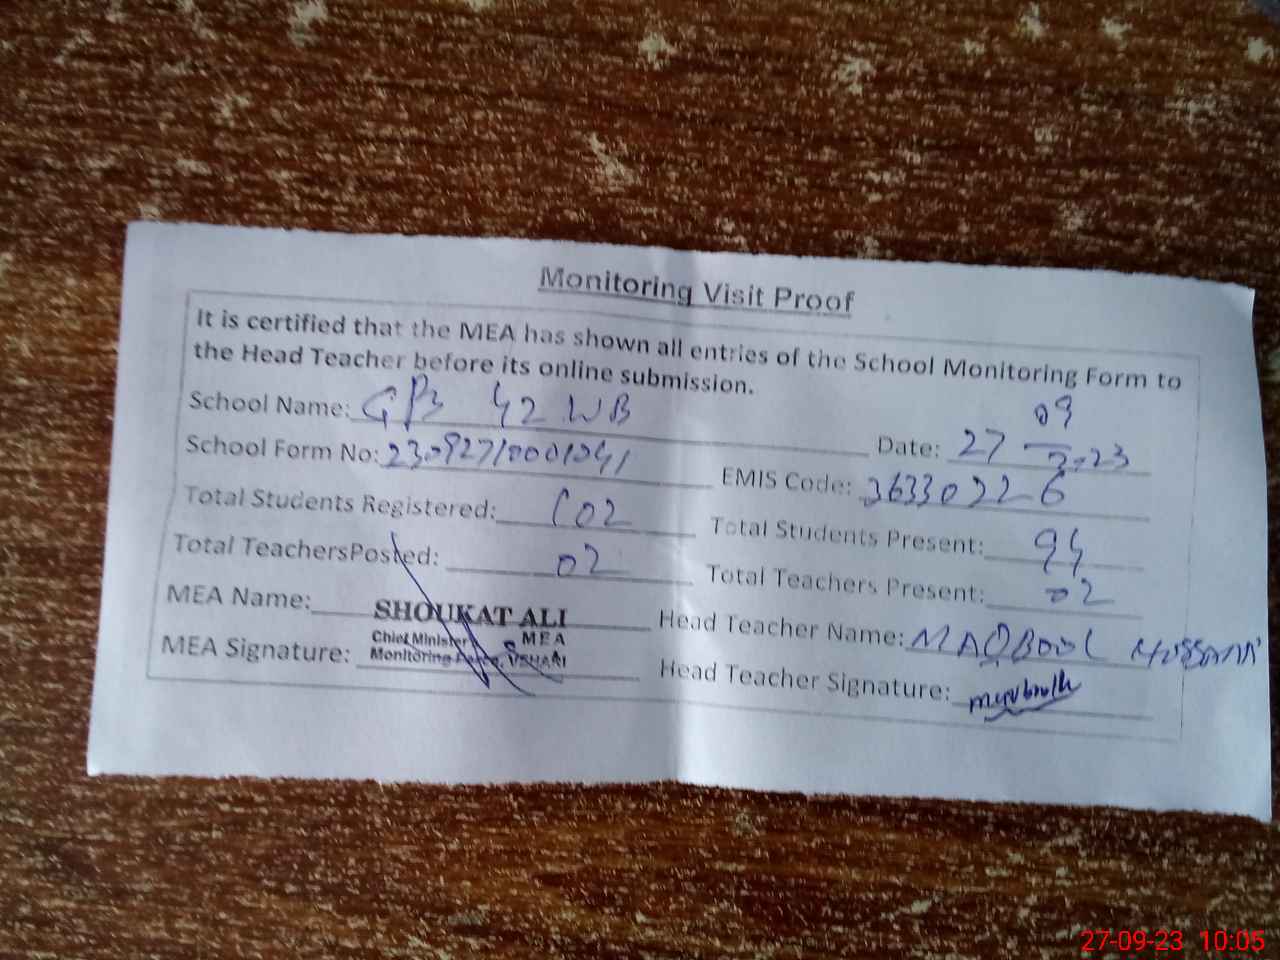 Monitoring Visit Proof
It is certified that the MEA has shown all entries of the School Monitoring Form to
the Head Teacher before its online submission.
School Name: GPS 42 WB
Date: 27 09 2023
School Form No: 23092710001041
EMIS Code: 36330226
Total Students Registered: 102
Total Students Present: 94
Total TeachersPosted: 02
Total Teachers Present: 02
MEA Name: SHOUKAT ALI
Head Teacher Name: MAQBOOL HUSSAIN
Chief Minister's MEA
MEA Signature: Monitoring Force, VEHARI
Head Teacher Signature:
27-09-23 10:05